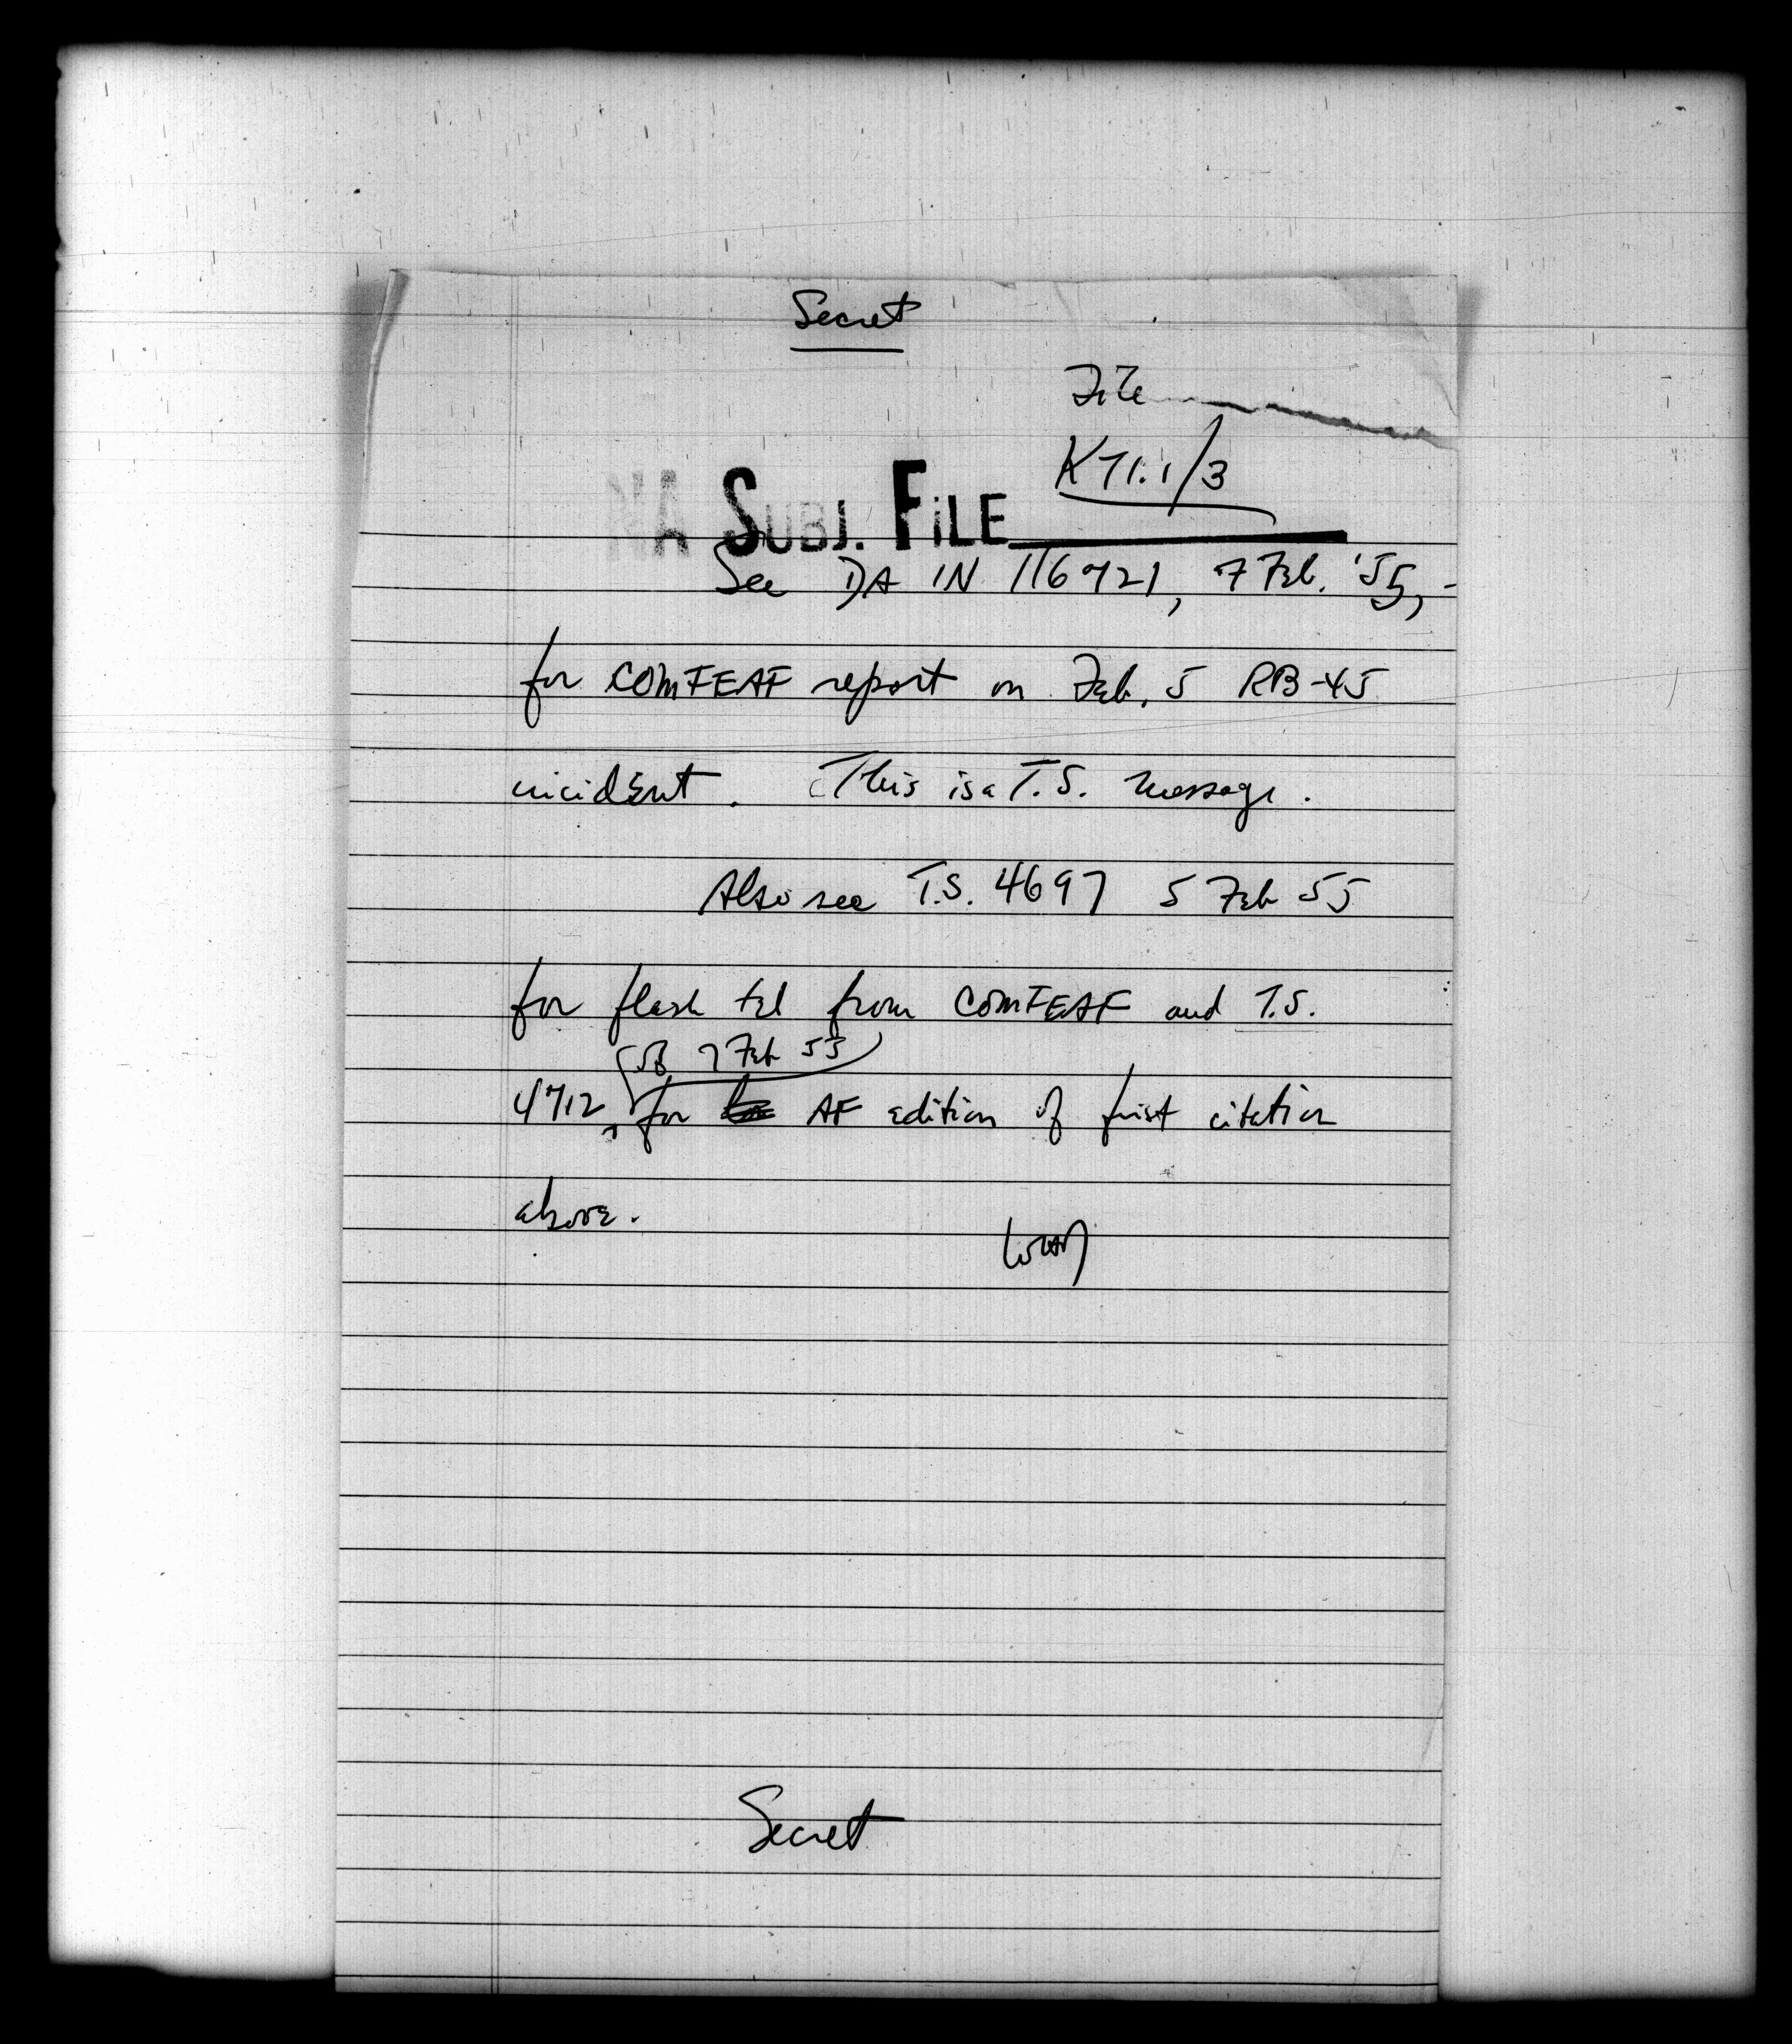 Secret
File
K71.1/3
NA SUBJ. FILE
See DA IN 116921, 7 Feb. '55,
for COMFEAF report on Feb. 5 RB-45
incident. This is a T.S. message.
Also see T.S. 4697 5 Feb 55
for flash tel from COMFEAF and T.S.
7 Feb 55
4712, for AF edition of first citation
above.
Secret